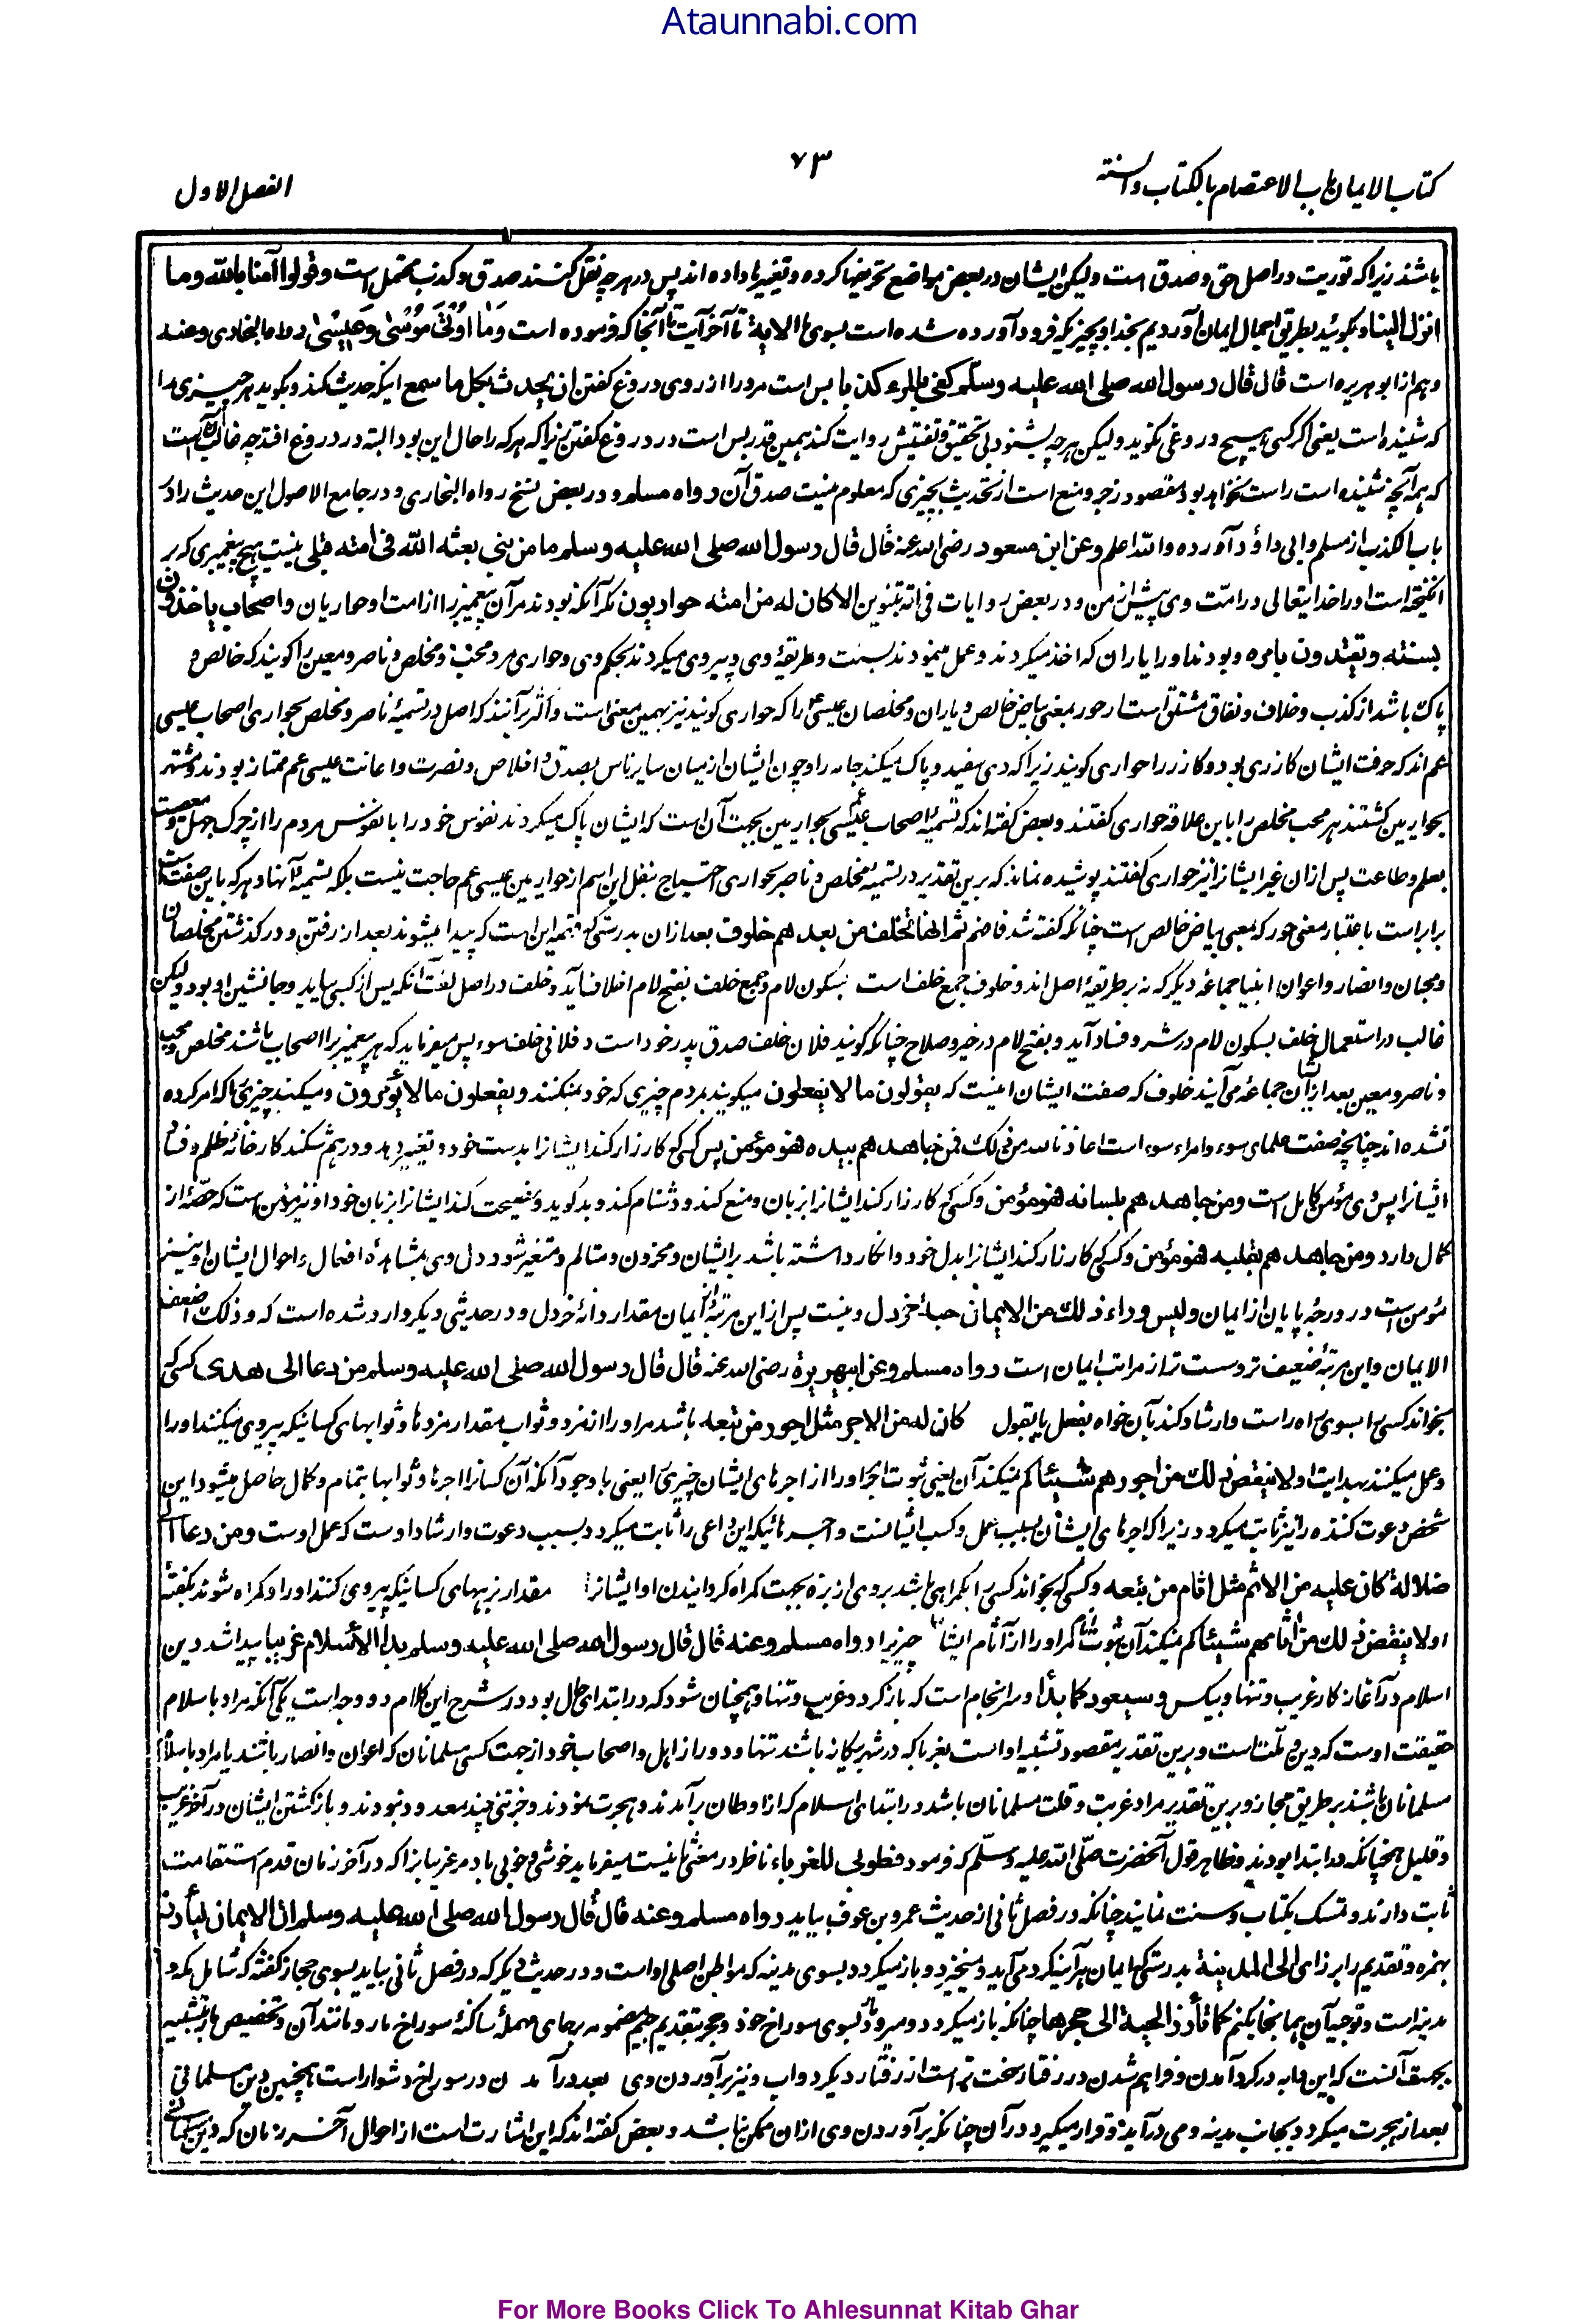 Ataunnabi.com
کتاب الایمان باب الاعتصام بالکتاب والسنته
۷۳
الفصل الاول
باشند زیرا که توریت در اصل حق و صدق است ولیکن ایشان در بعض مواضع تحریفها کرده و تغییرها داده اند پس در هر چه نقل کنند صدق و کذب محتمل است وقولوا آمنا بالله وما
انزل الینا و بگوئید بطریق اجمال ایمان آوردیم بخدا و بچیزیکه فرود آورده شده است بسوی ما الایة تا آخر آیت تا آنجا که فرموده است وَمَا اُوْتِیَ مُوْسٰی وَعِیْسٰی رواه البخاری وعنه
وهم از ابو هریره است قال قال رسول الله صلی الله علیه وسلم کفی بالمرء کذبا بس است مرد را از روی دروغ گفتن ان یحدث بکل ما سمع اینکه حدیث کند و بگوید هر چیزی را
که شنیده است یعنی اگر کسی هیچ دروغی نگوید ولیکن هر چه بشنود بی تحقیق و تفتیش روایت کند همین قدر بس است در دروغ گفتن زیرا که هر که را حال این بود البته در دروغ افتد چه غالب آنست
که همه آنچه شنیده است راست نخواهد بود مقصود زجر و منع است از تحدیث بچیزی که معلوم نیست صدق آن رواه مسلم و در بعض نسخ رواه البخاری و در جامع الاصول این حدیث را در
باب الکذب از مسلم و ابی داؤد آورده والله اعلم وعن ابن مسعود رضی الله عنه قال قال رسول الله صلی الله علیه وسلم ما من نبی بعثه الله فی امته قبلی نیست هیچ پیغمبری که بر
انگیخته است او را خدایتعالی در امت وی پیش از من و در بعض روایات فی امة بتنوین الا کان له من امته حواریون مگر آنکه بودند مر آن پیغمبر را از امت او حواریان واصحاب یاخذون
بسنته ویقتدون بامره و بودند او را یاران که اخذ میکردند و عمل مینمودند بسنت و طریقهٔ وی و پیروی میکردند بحکم وی و حواری مرد محب و مخلص و ناصر و معین را گویند که خالص و
پاک باشد از کذب و خلاف و نفاق مشتق است از حور بمعنی بیاض خالص و یاران و مخلصان عیسی را که حواری گویند نیز بهمین معنی است و اکثر بر آنند که اصل در تسمیهٔ ناصر و مخلص بحواری اصحاب عیسی
عم اند که حرفت ایشان گازری بود و گازر را حواری گویند زیرا که وی سفید و پاک میکند جامه را و چون ایشان از میان سایر ناس بصدق و اخلاص و نصرت و اعانت عیسی عم ممتاز بودند و مشتهر
بحواریین گشتند هر محب مخلص را باین علاقه حواری گفتند و بعض گفته اند که تسمیهٔ اصحاب عیسی بحواریین بجهت آن است که ایشان پاک میکردند نفوس خود را با نفوس مردم را از چرک جهل و معصیت
بعلم و طاعت پس ازان غیر ایشانرا نیز حواری گفتند پوشیده نماند که برین تقدیر در تسمیهٔ مخلص و ناصر بحواری احتیاج بنقل این اسم از حواریین عیسی عم حاجت نیست بلکه تسمیهٔ آنها و هر که باین صفت است
برابر است باعتبار معنی حور که بمعنی بیاض خالص است چنانکه گفته شد فافهم ثم انها تخلف من بعدهم خلوف بعد ازان بدرستی که قصه این است که پیدا میشوند بعد از رفتن و در گذشتن مخلصان
و محبان و انصار و اعوان انبیا جماعهٔ دیگر که نه بر طریقهٔ اصل اند و خلوف جمع خلف است بسکون لام و جمع خلف بفتح لام اخلاف آید و خلف در اصل لغت آنکه پس از کسی بیاید و جانشین او بود ولیکن
غالب در استعمال خلف بسکون لام در شر و فساد آید و بفتح لام در خیر و صلاح چنانکه گویند فلان خلف صدق پدر خود است و فلانی خلف سوء پس میفرماید که هر پیغمبر را اصحاب باشند مخلص و محب
و ناصر و معین بعد از ایشان جماعهٔ می آیند خلوف که صفت ایشان اینست که یقولون ما لا یفعلون میگویند بمردم چیزی که خود نمیکنند ویفعلون ما لا یؤمرون و میکنند چیزی را که امر کرده
نشده اند چنانچه صفت علمای سوء و امراء سوء است اعاذنا الله من ذلک فمن جاهدهم بیده فهو مؤمن پس کسی که کارزار کند ایشانرا بدست خود و تغییر دهد و در هم شکند کارخانهٔ ظلم و فساد
ایشانرا پس وی مؤمن کامل است ومن جاهدهم بلسانه فهو مؤمن و کسی که کارزار کند ایشانرا بزبان و منع کند و دشنام کند و بد گوید و نصیحت کند ایشانرا بزبان خود او نیز مؤمن است که حصّه از
کمال دارد ومن جاهدهم بقلبه فهو مؤمن و کسی که کارزار کند ایشانرا بدل خود و انکار داشته باشد بر ایشان و محزون و متالم و متغیر شود دل وی بمشاهدهٔ افعال و احوال ایشان او نیز
مؤمن است در درجهٔ پایان از ایمان ولیس وراء ذلک من الایمان حبة خردل و نیست پس از این مرتبه از ایمان مقدار دانهٔ خردل و در حدیثی دیگر وارد شده است که وذلک اضعف
الایمان و این مرتبهٔ ضعیف تر و سست تر از مراتب ایمان است رواه مسلم وعن ابیهریرة رضی الله عنه قال قال رسول الله صلی الله علیه وسلم من دعا الی هدی کسی که
بخواند کسی را بسوی راه راست و ارشاد کند بآن خواه بفعل یا بقول کان له من الاجر مثل اجور من تبعه باشد مر او را از مزد و ثواب مقدار مزدها و ثوابهای کسانیکه پیروی میکنند او را
و عمل میکنند بهدایت او لا ینقص ذلک من اجورهم شیئا کم نمیکند آن یعنی ثبوت اجر او را از اجرهای ایشان چیزی را یعنی با وجود آنکه آن کسانرا اجرها و ثوابها بتمام و کمال حاصل میشود این
شخص دعوت کننده را نیز ثابت میگردد زیرا که اجرهای ایشان بسبب عمل و کسب ایشانست و اجرهائیکه این داعی را ثابت میگردد بسبب دعوت و ارشاد اوست که عمل اوست ومن دعا الی
ضلالة کان علیه من الاثم مثل اثام من تبعه و کسی که بخواند کسی را بگمراهی باشد بر وی از بزه بجهت گمراه گردانیدن او ایشانرا مقدار بزهای کسانیکه پیروی کنند او را و گمراه شوند بگفتهٔ
او لا ینقص ذلک من اثامهم شیئا کم نمیکند آن ثبوت آثام مر او را از آثام ایشان چیزیرا رواه مسلم وعنه قال قال رسول الله صلی الله علیه وسلم بدا الاسلام غریبا پیدا شد دین
اسلام در آغاز کار غریب و تنها و بیکس وسیعود کما بدأ و سرانجام است که باز گردد غریب و تنها و همچنان شود که در ابتدای حال بود در شرح این کلام دو وجه است یکی آنکه مراد باسلام
حقیقت اوست که دین و ملت است و برین تقدیر مقصود تشبیه او است بغربا که در شهر بیگانه باشند تنها و دور از اهل و اصحاب خود از جهت کمی مسلمانان که اعوان و انصار باشند یا مراد باسلام
مسلمانان باشند بر طریق مجاز و برین تقدیر مراد غربت و قلت مسلمانان باشد در ابتدای اسلام که از اوطان بر آمدند و هجرت نمودند و جز تنی چند معدود نبودند و باز گشتن ایشان در آخر غریب
و قلیل همچنانکه در ابتدا بودند و ظاهر قول آنحضرت صلی الله علیه وسلم که فرمود فطوبی للغرباء ناظر در معنی ثانیست میفرماید خوشی و خوبی باد مر غریبانرا که در آخر زمان قدم استقامت
ثابت دارند و تمسک بکتاب و سنت نمایند چنانکه در فصل ثانی از حدیث عمرو بن عوف بیاید رواه مسلم وعنه قال قال رسول الله صلی الله علیه وسلم ان الایمان لیأرز
بهمزه و تقدیم را بر زای الی المدینة بدرستی که ایمان هر آئینه گرد می آید و میخیزد و باز میگردد بسوی مدینه که موطن اصلی او است و در حدیث دیگر که در فصل ثانی بیاید بسوی حجاز گفته که شامل مکه و
مدینه است و توجیه آن همانجا بکنیم کما تأرز الحیة الی جحرها چنانکه باز میگردد و میرود مار بسوی سوراخ خود و جحر بتقدیم جیم مضمومه بر حای مهملهٔ ساکنهٔ سوراخ مار و مانند آن و تخصیص مار بتشبیه
بجهت آنست که این دابه در گرد آمدن و فراهم شدن در رفتار سخت تر است از رفتار دیگر دواب و نیز بر آوردن وی بعد در آمدن در سوراخ دشوار است همچنین دین مسلمانی
بعد از هجرت میگردد بجانب مدینه و می در آید و قرار میگیرد در آن چنانکه بر آوردن وی ازان ممکن نباشد و بعض گفته اند که این اشارت است از احوال آخر زمان که دین مسلمانی
For More Books Click To Ahlesunnat Kitab Ghar